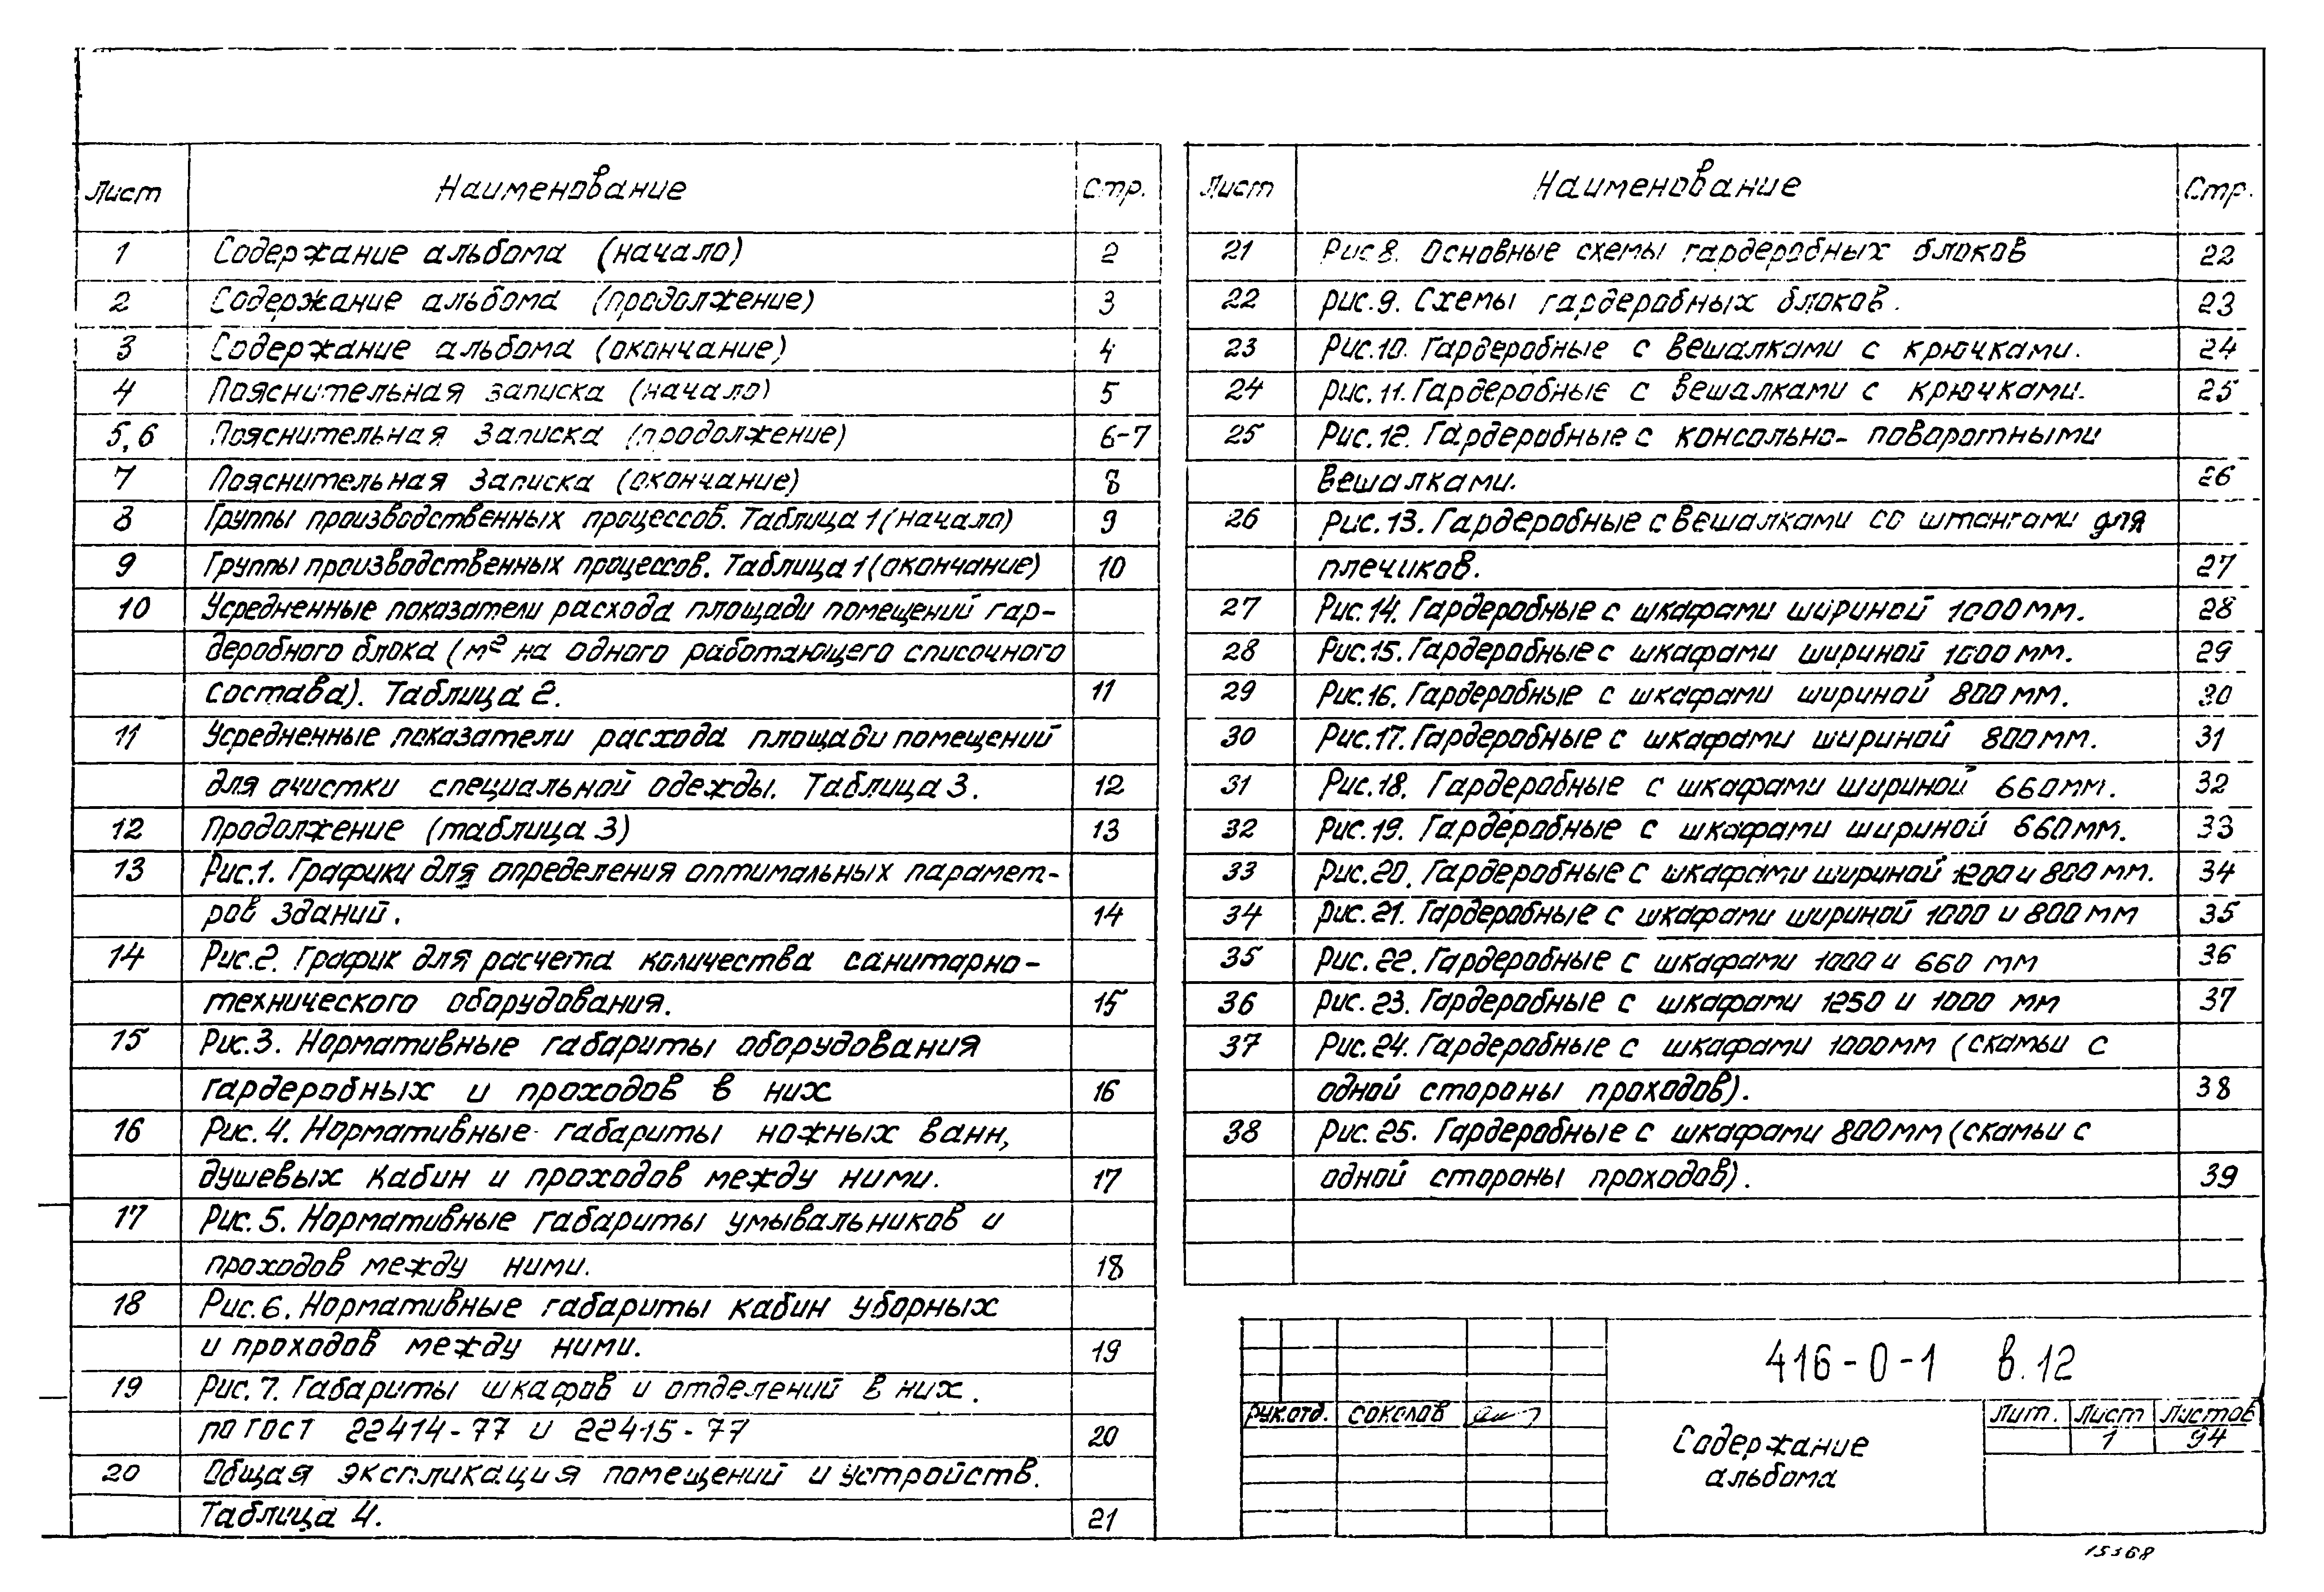 Лист Наименование Стр.
1 Содержание альбома (начало) 2
2 Содержание альбома (продолжение) 3
3 Содержание альбома (окончание) 4
4 Пояснительная записка (начало) 5
5,6 Пояснительная записка (продолжение) 6-7
7 Пояснительная записка (окончание) 8
8 Группы производственных процессов. Таблица 1 (начало) 9
9 Группы производственных процессов. Таблица 1 (окончание) 10
10 Усредненные показатели расхода площади помещений гар-
деробного блока (м² на одного работающего списочного
состава). Таблица 2. 11
11 Усредненные показатели расхода площади помещений
для очистки специальной одежды. Таблица 3. 12
12 Продолжение (таблица 3) 13
13 Рис.1. Графики для определения оптимальных парамет-
ров зданий. 14
14 Рис.2. График для расчета количества санитарно-
технического оборудования. 15
15 Рис.3. Нормативные габариты оборудования
гардеробных и проходов в них 16
16 Рис.4. Нормативные габариты ножных ванн,
душевых кабин и проходов между ними. 17
17 Рис.5. Нормативные габариты умывальников и
проходов между ними. 18
18 Рис.6. Нормативные габариты кабин уборных
и проходов между ними. 19
19 Рис.7. Габариты шкафов и отделений в них.
по ГОСТ 22414-77 и 22415-77 20
20 Общая экспликация помещений и устройств.
Таблица 4. 21
Лист Наименование Стр.
21 Рис 8. Основные схемы гардеробных блоков 22
22 Рис.9. Схемы гардеробных блоков. 23
23 Рис.10. Гардеробные с вешалками с крючками. 24
24 Рис.11. Гардеробные с вешалками с крючками. 25
25 Рис.12. Гардеробные с консольно-поворотными
вешалками. 26
26 Рис.13. Гардеробные с вешалками со штангами для
плечиков. 27
27 Рис.14. Гардеробные с шкафами шириной 1000мм. 28
28 Рис.15. Гардеробные с шкафами шириной 1000мм. 29
29 Рис.16. Гардеробные с шкафами шириной 800мм. 30
30 Рис.17. Гардеробные с шкафами шириной 800мм. 31
31 Рис.18. Гардеробные с шкафами шириной 660мм. 32
32 Рис.19. Гардеробные с шкафами шириной 660мм. 33
33 Рис.20. Гардеробные с шкафами шириной 1200 и 800мм. 34
34 Рис.21. Гардеробные с шкафами шириной 1000 и 800мм 35
35 Рис.22. Гардеробные с шкафами 1000 и 660 мм 36
36 Рис.23. Гардеробные с шкафами 1250 и 1000 мм 37
37 Рис.24. Гардеробные с шкафами 1000мм (скамьи с
одной стороны проходов). 38
38 Рис.25. Гардеробные с шкафами 800мм (скамьи с
одной стороны проходов). 39
416-0-1 в.12
Рук.отд. Соколов
Содержание
альбома
Лит. Лист Листов
1 94
15368